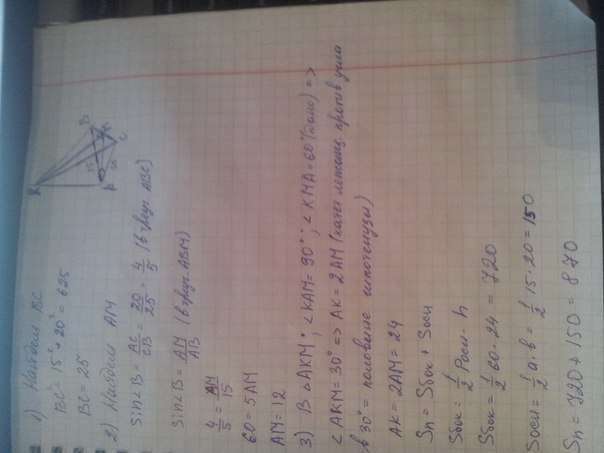 1) Найдём BC
BC² = 15² + 20² = 625
BC = 25
2) Найдём AM
Sin∠B = AC/CB = 20/25 = 4/5 (в треуг. ABC)
Sin∠B = AM/AB (в треуг. ABM)
4/5 = AM/15
60 = 5AM
AM = 12
3) В ∆AKM; ∠KAM = 90°; ∠KMA = 60° (дано) =>
∠AKM = 30° => AK = 2AM (катет лежащ. против угла
в 30° = половине гипотенузы)
AK = 2AM = 24
Sп = Sбок + Sосн
Sбок = 1/2 Pосн · h
Sбок = 1/2 60 · 24 = 720
Sосн = 1/2 a · b = 1/2 15 · 20 = 150
Sп = 720 + 150 = 870
K
B
M
C
A
15
20